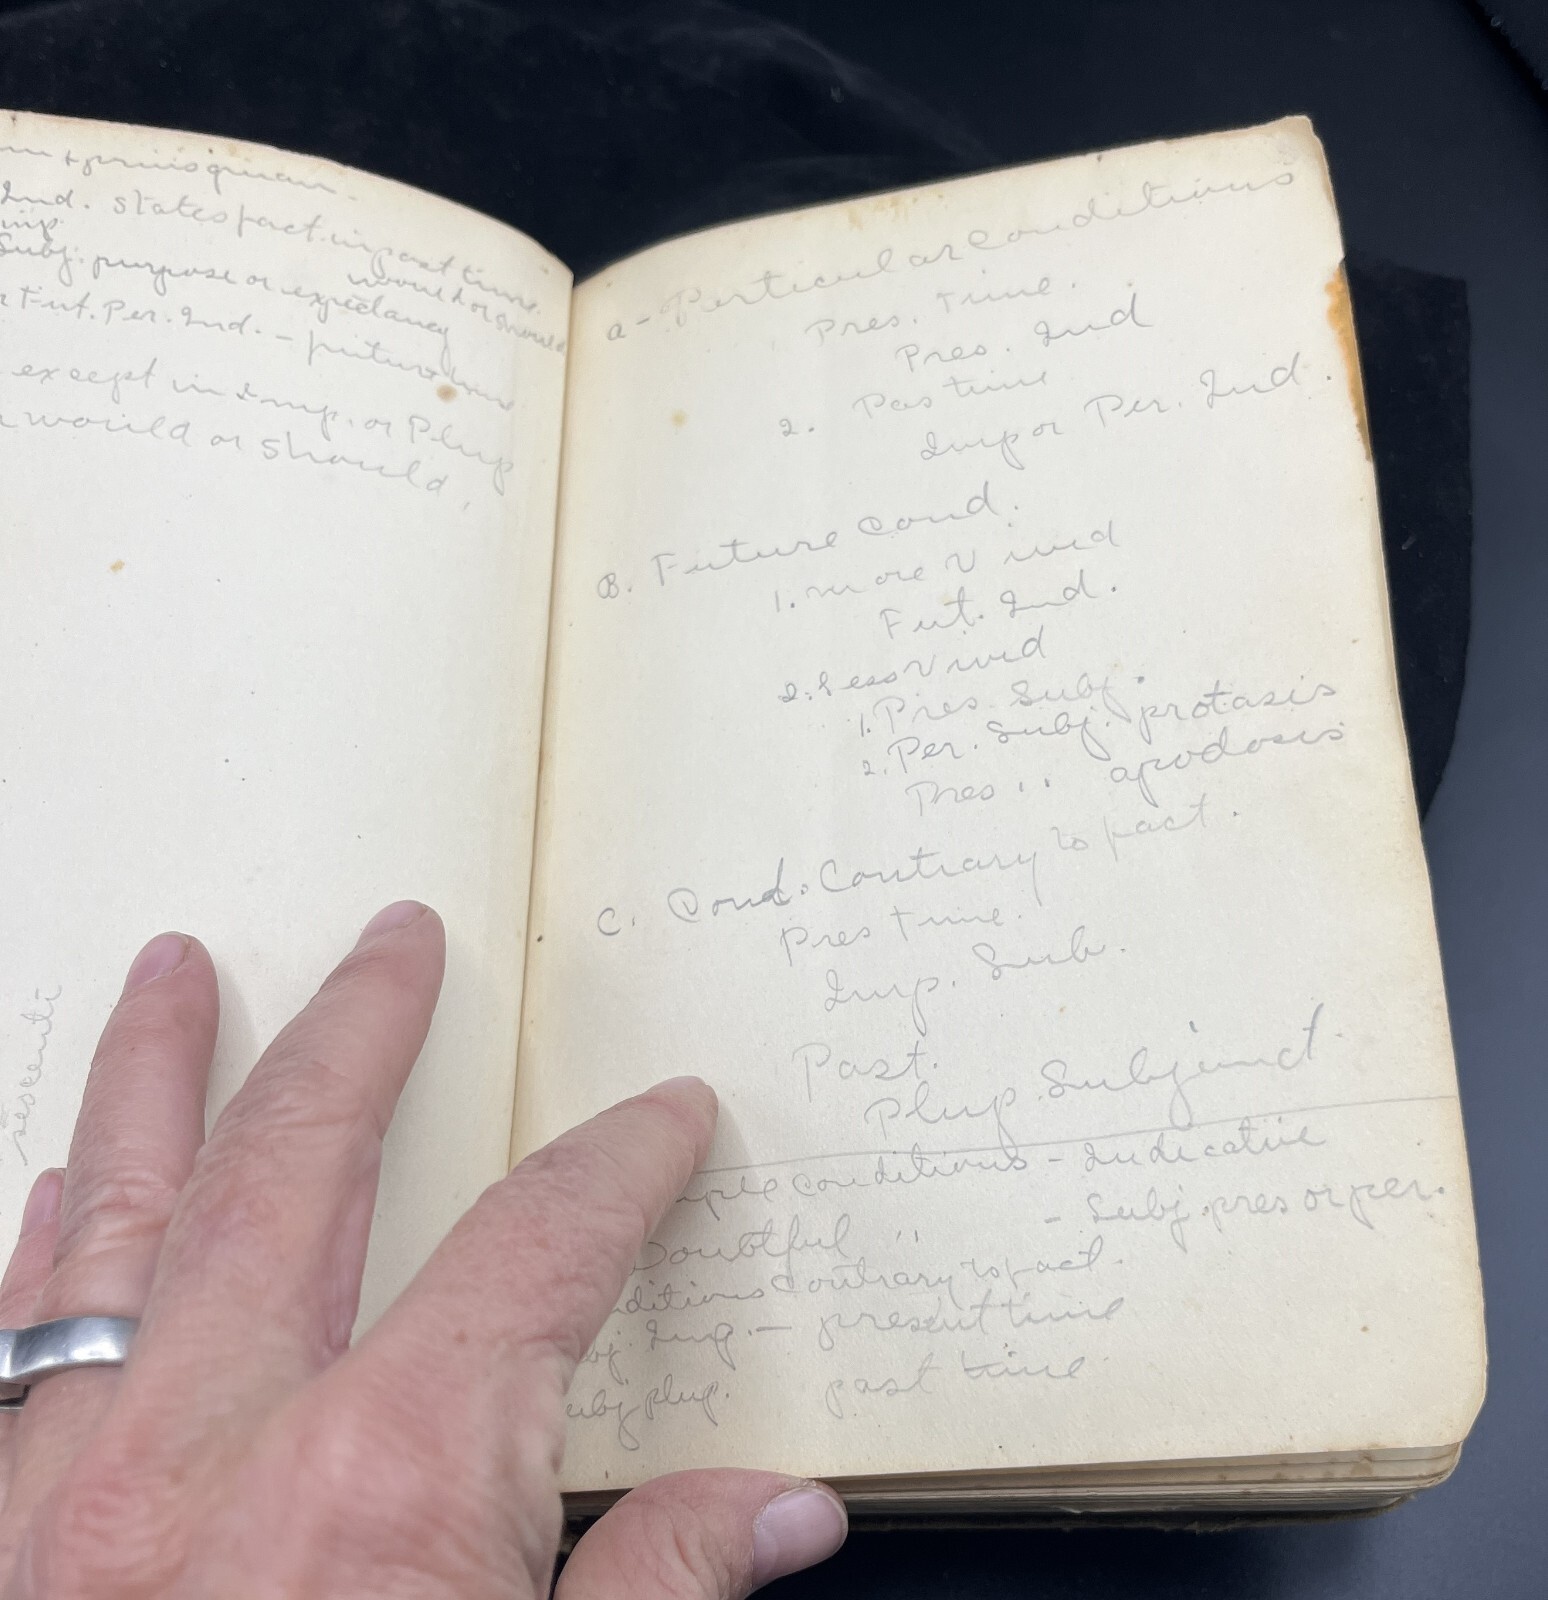 + priusquam
Ind. states fact in past time.
imp.
Subj. purpose or expectancy
would or should
Fut. Per. Ind. - future time
except in Imp. or Plup
would or should.
sescenti
a - Particular Conditions
Pres. Time.
Pres. Ind
2. Pas time
Imp or Per. Ind.
B. Future Cond.
1. more Vivid
Fut. Ind.
2. Less Vivid
1. Pres. Subj.
2. Per. Subj. protasis
Pres " apodosis
C. Cond. Contrary to fact.
Pres Time.
Imp. Sub.
Past.
Plup. Subjunct.
conditions - Indicative
Doubtful " - Subj. pres or per.
Contrary to fact.
Imp. - present time
plup. past time